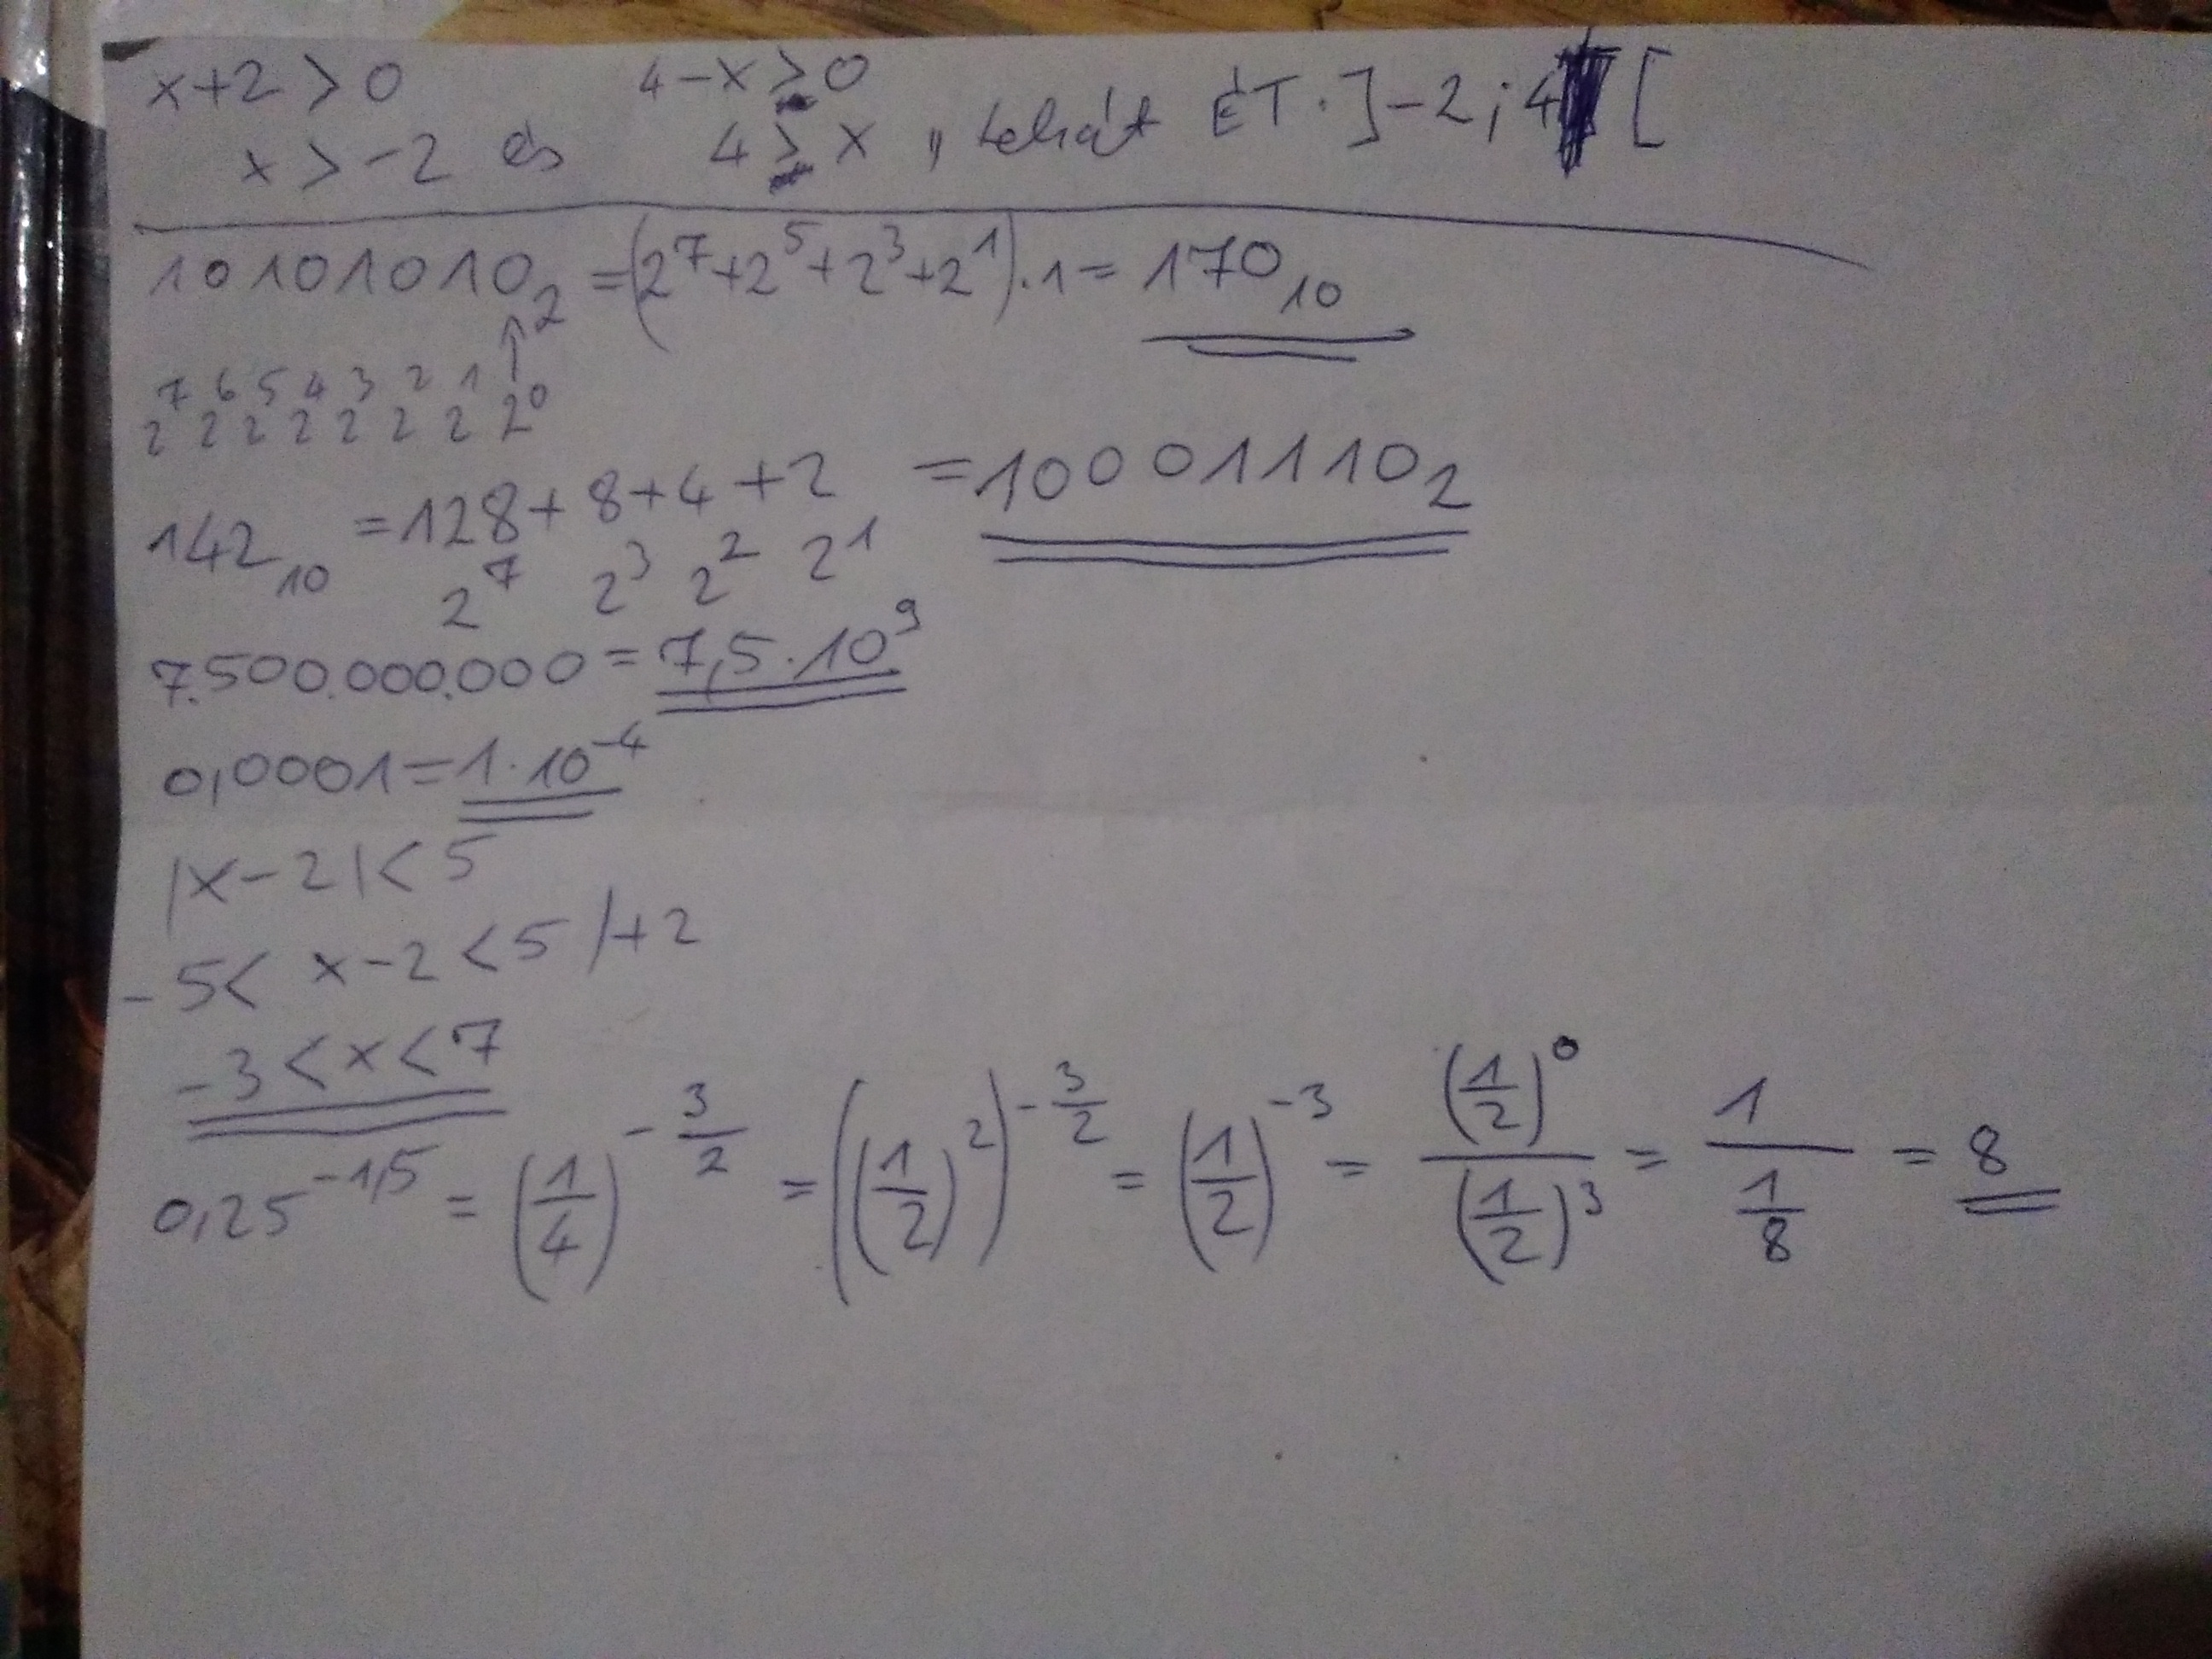 x+2>0 4-x≥0
x>-2 és 4≥x, tehát ÉT. ]-2; 4 [
10101010₂ = (2⁷+2⁵+2³+2¹)·1 = 170₁₀
↑
2⁷ 2⁶ 2⁵ 2⁴ 2³ 2² 2¹ 2⁰
142₁₀ = 128+8+4+2 = 10001110₂
2⁷ 2³ 2² 2¹
7.500.000.000 = 7,5·10⁹
0,0001 = 1·10⁻⁴
|x-2|<5
-5< x-2 <5 /+2
-3<x<7
0,25^(-1,5) = (1/4)^(-3/2) = ((1/2)²)^(-3/2) = (1/2)⁻³ = (1/2)⁰/(1/2)³ = 1/(1/8) = 8